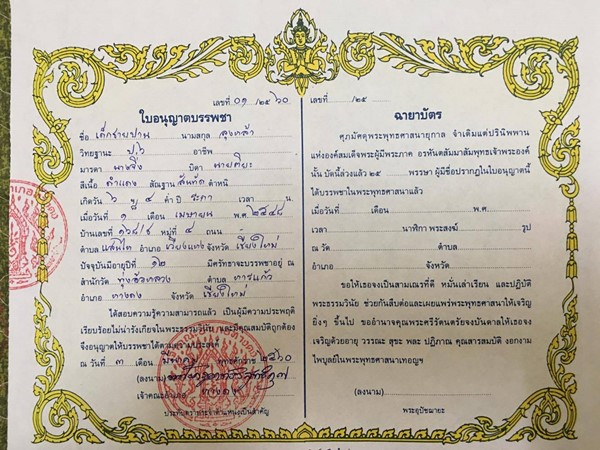 เลขที่ ๐๑ /๒๕๖๐
ใบอนุญาตบรรพชา
ชื่อ เด็กชายปาน นามสกุล ลุงหล้า
วิทยฐานะ ป.๖ อาชีพ
มารดา นางจิ่ง บิดา นาย
สีเนื้อ ดำแดง สัณฐาน สันทัด ตำหนิ
เกิดวัน ๖ ๕ ค่ำ ปี ระกา เวลา น.
เมื่อวันที่ ๑ เดือน เมษายน พ.ศ. ๒๕๔๘
บ้านเลขที่ หมู่ที่ ๕ ถนน -
ตำบล แสนไห อำเภอ เวียงแหง จังหวัด เชียงใหม่
ปัจจุบันมีอายุปีที่ ๑๒ มีศรัทธาจะบรรพชาอยู่ ณ
สำนักวัด ทุ่งอ้อหลวง ตำบล หารแก้ว
อำเภอ หางดง จังหวัด เชียงใหม่
ได้สอบความรู้ความสามารถแล้ว เป็นผู้มีความประพฤติ
เรียบร้อยไม่น่ารังเกียจในพระธรรมวินัย และมีคุณสมบัติถูกต้อง
จึงอนุญาตให้บรรพชาได้ตามความประสงค์
ณ วันที่ ๓ เดือน มีนาคม พุทธศักราช ๒๕๖๐
(ลงนาม)
เจ้าคณะอำเภอ หางดง
ประทับตราประจำตำแหน่งเป็นสำคัญ
เลขที่ /๒๕
ฉายาบัตร
ศุภมัสดุพระพุทธศาสนายุกาล จำเดิมแต่ปรินิพพาน
แห่งองค์สมเด็จพระผู้มีพระภาค อรหันตสัมมาสัมพุทธเจ้าพระองค์
นั้น บัดนี้ล่วงแล้ว ๒๕ พรรษา ผู้มีชื่อปรากฏในใบอนุญาตนี้
ได้บรรพชาในพระพุทธศาสนาแล้ว
เมื่อวันที่ เดือน พ.ศ.
เวลา นาฬิกา พระสงฆ์ รูป
ณ วัด ตำบล
อำเภอ จังหวัด
ขอให้เธอจงเป็นสามเณรที่ดี หมั่นเล่าเรียน และปฏิบัติ
พระธรรมวินัย ช่วยกันสืบต่อและเผยแพร่พระพุทธศาสนาให้เจริญ
ยิ่งๆ ขึ้นไป ขออำนาจคุณพระศรีรัตนตรัยจงบันดาลให้เธอจง
เจริญด้วยอายุ วรรณะ สุขะ พละ ปฏิภาณ คุณสารสมบัติ งอกงาม
ไพบูลย์ในพระพุทธศาสนาเทอญฯ
(ลงนาม)
พระอุปัชฌายะ